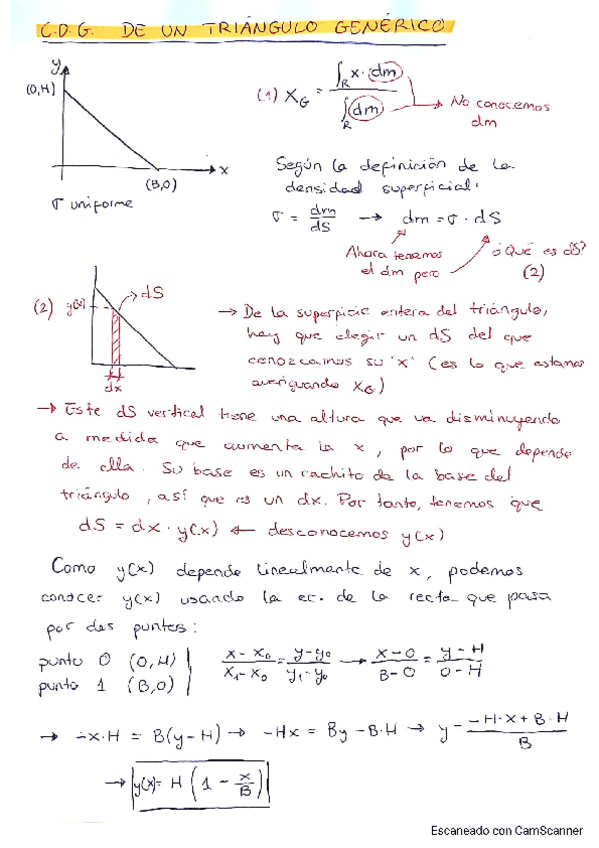 C.D.G. DE UN TRIÁNGULO GENÉRICO
y
(0,H)
x
(B,0)
σ uniforme
(1) X_G = ∫_R x·dm / ∫_R dm → No conocemos dm
Según la definición de la
densidad superficial:
σ = dm/dS → dm = σ · dS
Ahora tenemos
el dm pero
¿Qué es dS?
(2)
(2) y(x)
dS
dx
→ De la superficie entera del triángulo,
hay que elegir un dS del que
conozcamos su 'x' (es lo que estamos
averiguando X_G)
→ Este dS vertical tiene una altura que va disminuyendo
a medida que aumenta la x, por lo que depende
de ella. Su base es un cachito de la base del
triángulo, así que es un dx. Por tanto, tenemos que
dS = dx · y(x) ← desconocemos y(x)
Como y(x) depende linealmente de x, podemos
conocer y(x) usando la ec. de la recta que pasa
por dos puntos:
punto 0 (0,H)
punto 1 (B,0)
x - x₀ / x₁ - x₀ = y - y₀ / y₁ - y₀ → x - 0 / B - 0 = y - H / 0 - H
→ -x·H = B(y-H) → -Hx = By - B·H → y = -H·x + B·H / B
→ y(x) = H (1 - x/B)
Escaneado con CamScanner